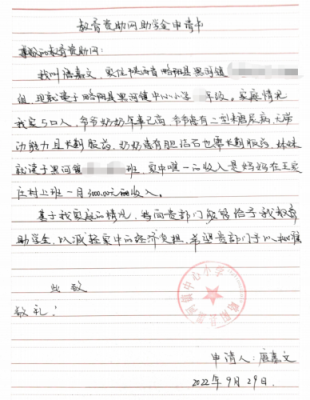 教育资助网助学金申请书
尊敬的教育资助网：
我叫 嘉文，家住陕西省略阳县黑河镇
组，现就读于略阳县黑河镇中心小学 年级。家庭情况
我家5口人，爷爷奶奶年事已高，爷爷患有二型糖尿病，无劳
动能力且长期服药，奶奶患有胆结石也要长期服药，妹妹
就读于黑河镇 班，家中唯一的收入是妈妈在
庄村上班一月3000.00元的收入。
基于我家庭的情况，特向贵部门 给予我教育
助学金，以减轻家中的经济负担，希望贵部门予以批准
此致
敬礼！
申请人： 嘉文
2022年9月29日.